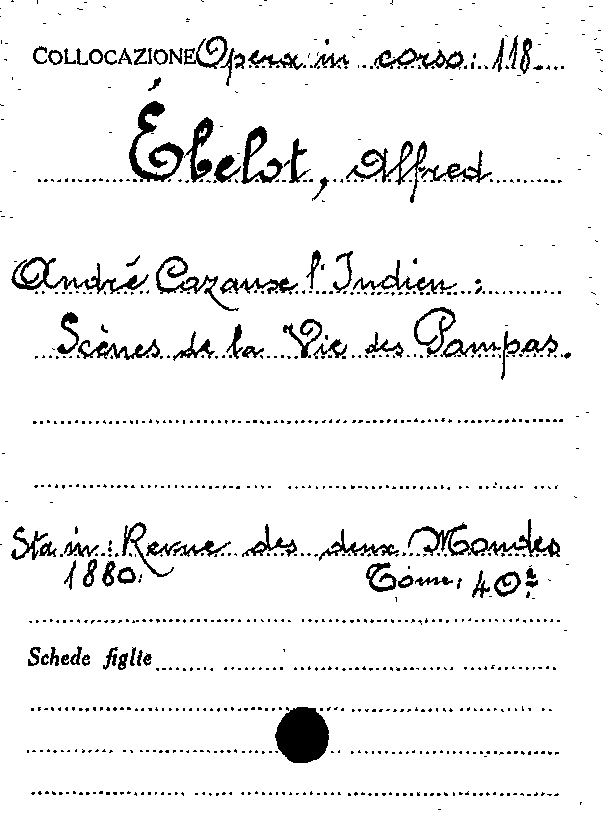 COLLOCAZIONE Opera in corso: 118
Ébelot, Alfred
André Cazaux l'Indien :
Scènes de la Vie des Pampas.
Sta in: Revue des deux Mondes
1880. Tome: 40º
Schede figlie